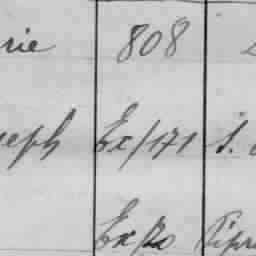 rie 808
seph Ex/171 S.
Ex/20 Cipr